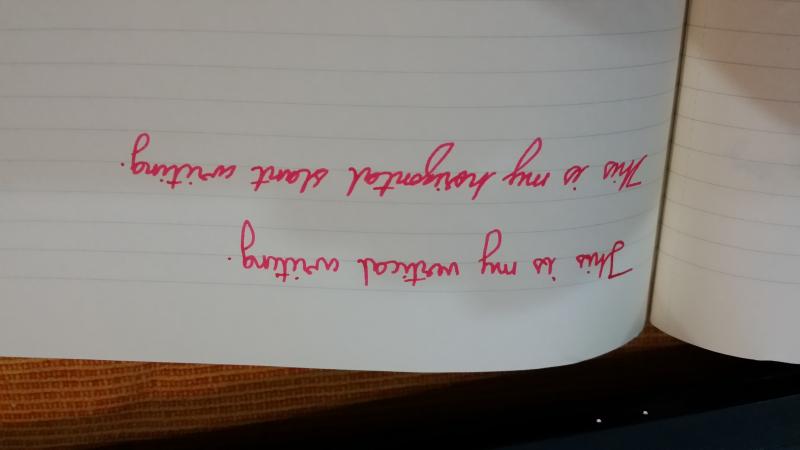 This is my vertical writing.
This is my horizontal slant writing.